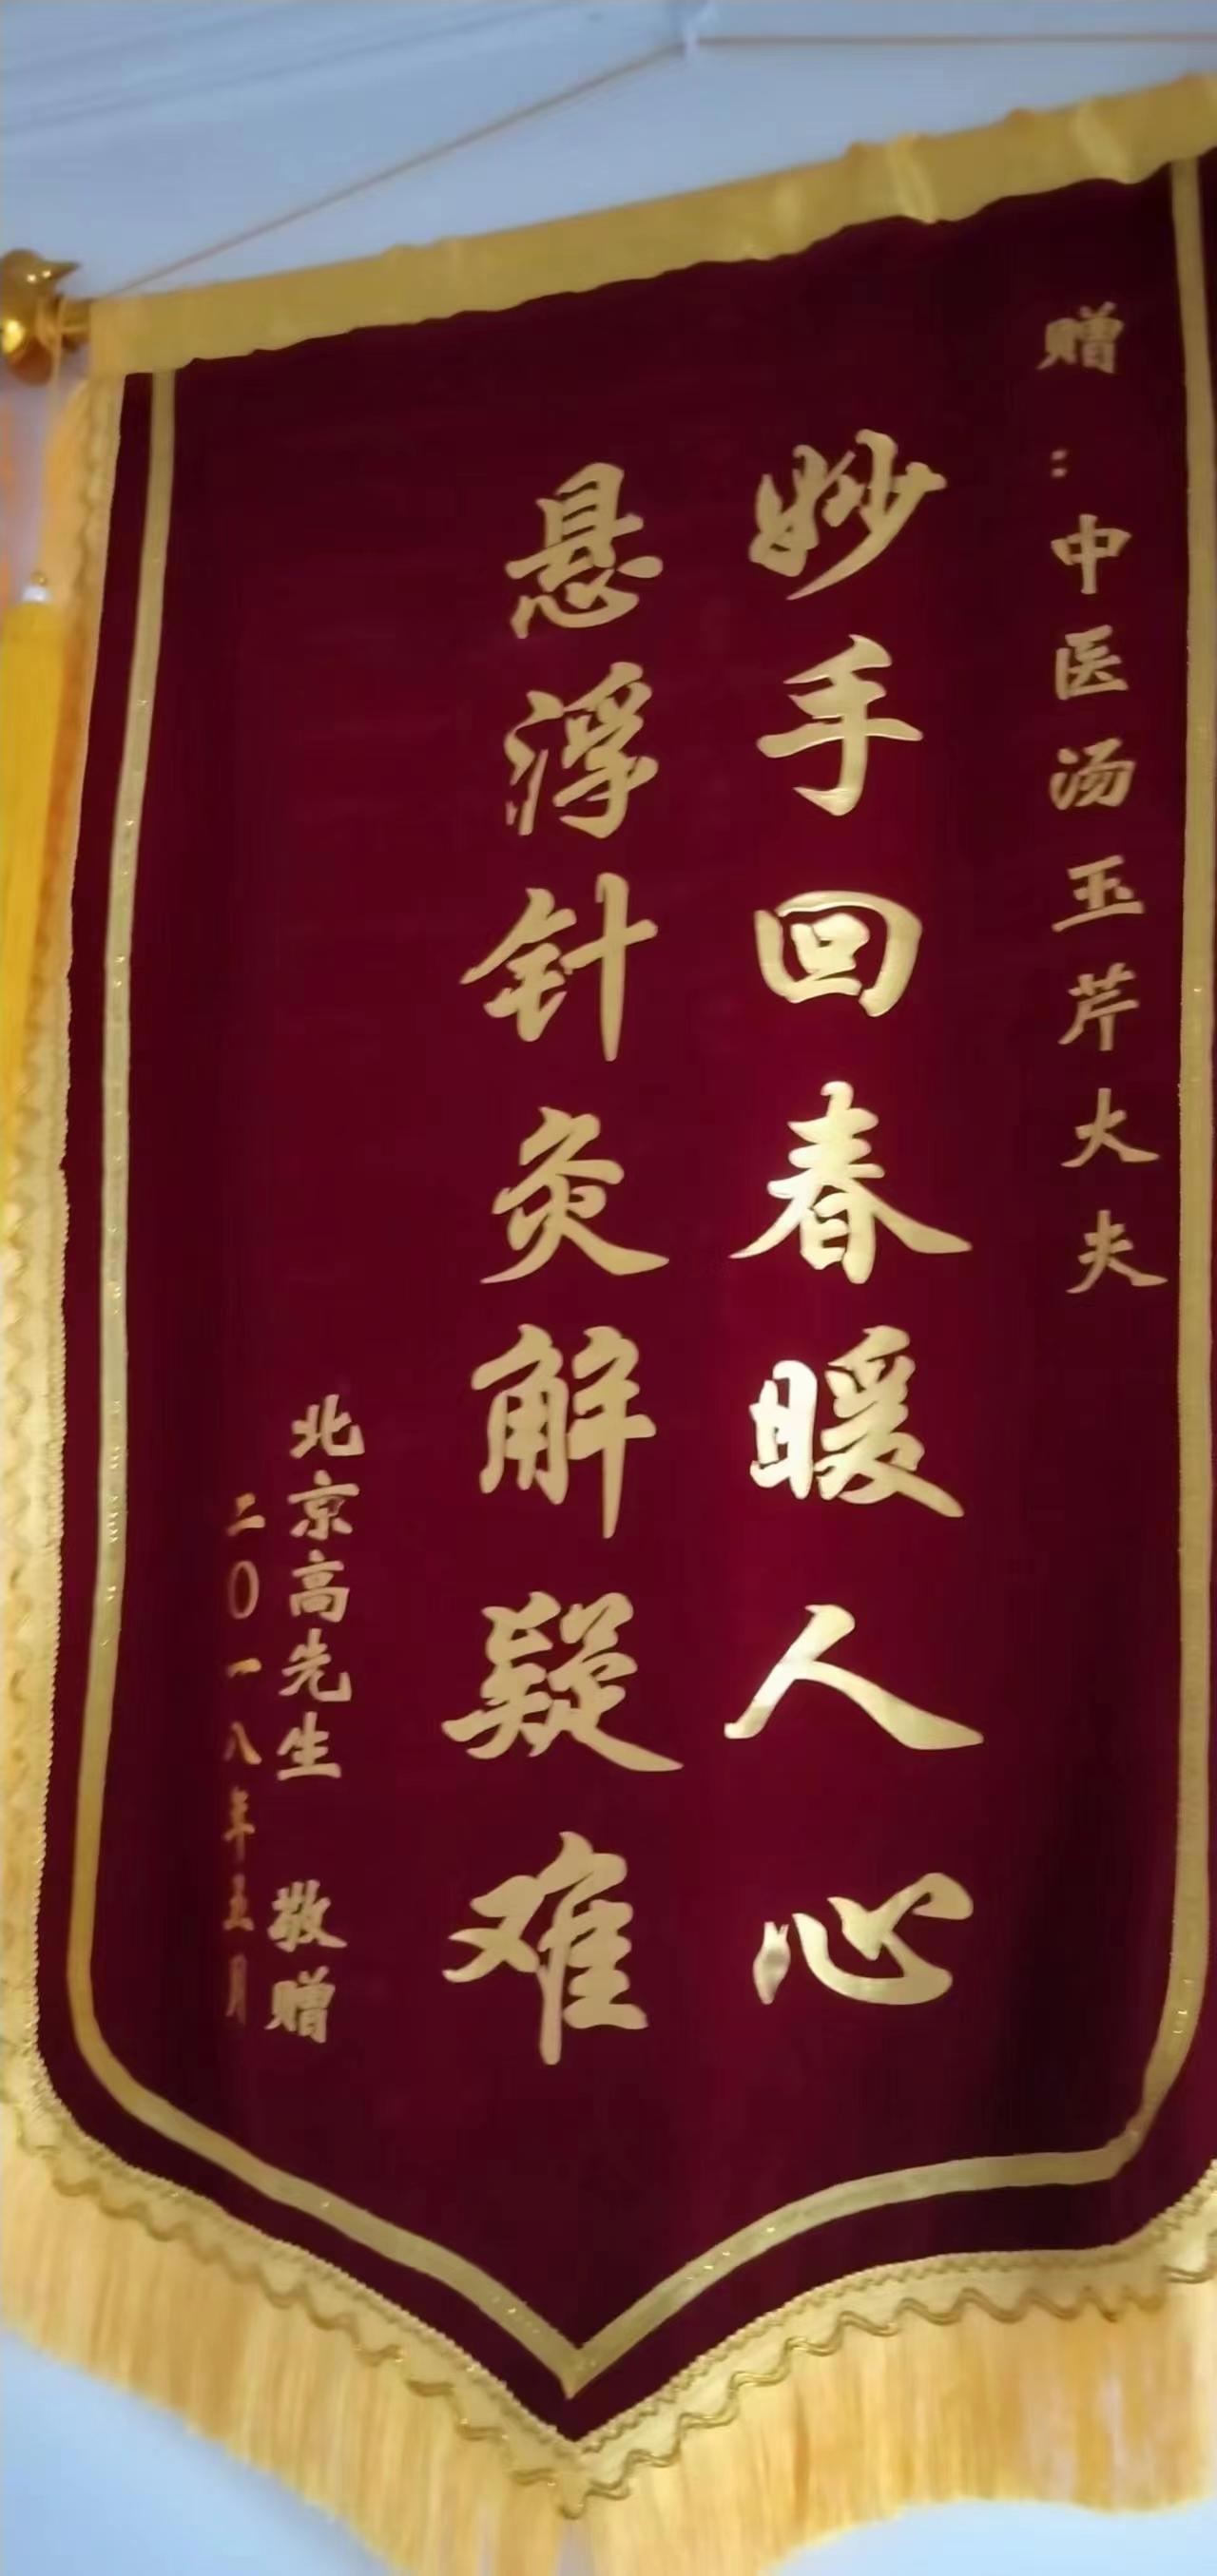 赠：中医汤玉芹大夫
妙手回春暖人心
悬浮针灸解疑难
北京高先生 敬赠
二〇一八年五月